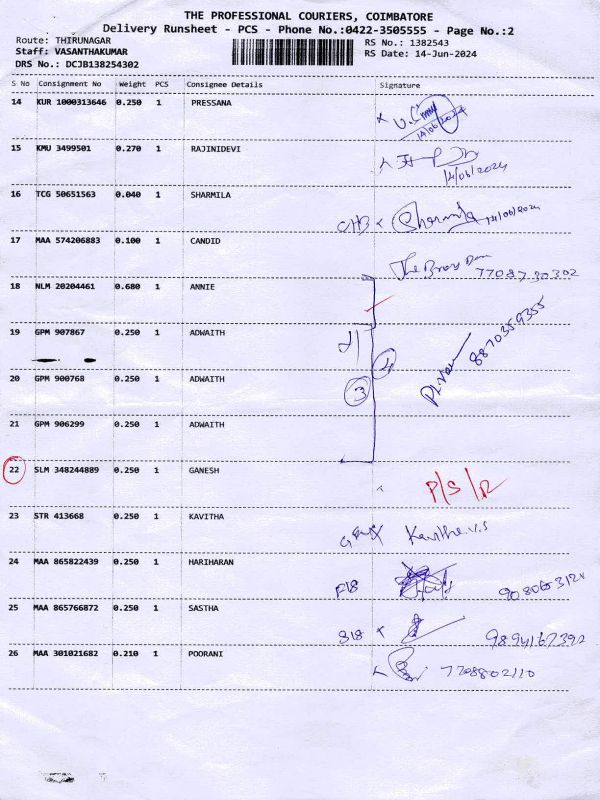 THE PROFESSIONAL COURIERS, COIMBATORE
Delivery Runsheet - PCS - Phone No.:0422-3505555 - Page No.:2
Route: THIRUNAGAR
RS No.: 1382543
Staff: VASANTHAKUMAR
RS Date: 14-Jun-2024
DRS No.: DCJB138254302
S No Consignment No Weight PCS Consignee Details Signature
14 KUR 1000313646 0.250 1 PRESSANA
14/06/2024
15 KMU 3499501 0.270 1 RAJINIDEVI
14/06/2024
16 TCG 50651563 0.040 1 SHARMILA
Sharmila 14/06/2024
17 MAA 574206883 0.100 1 CANDID
18 NLM 20204461 0.680 1 ANNIE
19 GPM 907867 0.250 1 ADWAITH
8870359355
4
20 GPM 900768 0.250 1 ADWAITH
3
21 GPM 906299 0.250 1 ADWAITH
22 SLM 348244889 0.250 1 GANESH
P/S/R
23 STR 413668 0.250 1 KAVITHA
Kavitha.v.s
24 MAA 865822439 0.250 1 HARIHARAN
F18
25 MAA 865766872 0.250 1 SASTHA
S18 9894167392
26 MAA 301021682 0.210 1 POORANI
7708802110